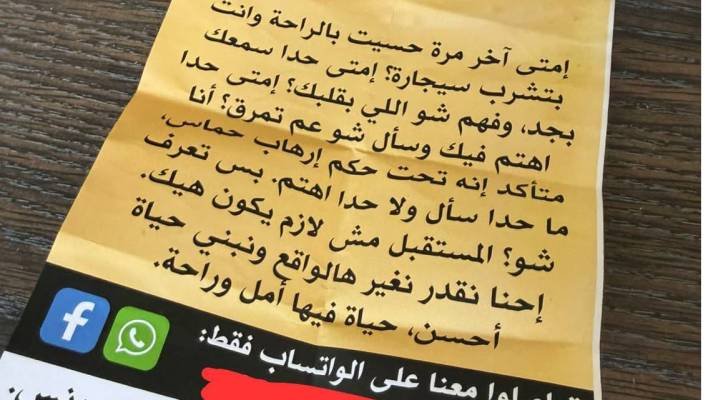 إمتى آخر مرة حسيت بالراحة وانت
بتشرب سيجارة؟ إمتى حدا سمعك
بجد، وفهم شو اللي بقلبك؟ إمتى حدا
اهتم فيك وسأل شو عم تمرق؟ أنا
متأكد إنه تحت حكم إرهاب حماس،
ما حدا سأل ولا حدا اهتم. بس تعرف
شو؟ المستقبل مش لازم يكون هيك.
إحنا نقدر نغير هالواقع ونبني حياة
أحسن، حياة فيها أمل وراحة.
معنا على الواتساب فقط: